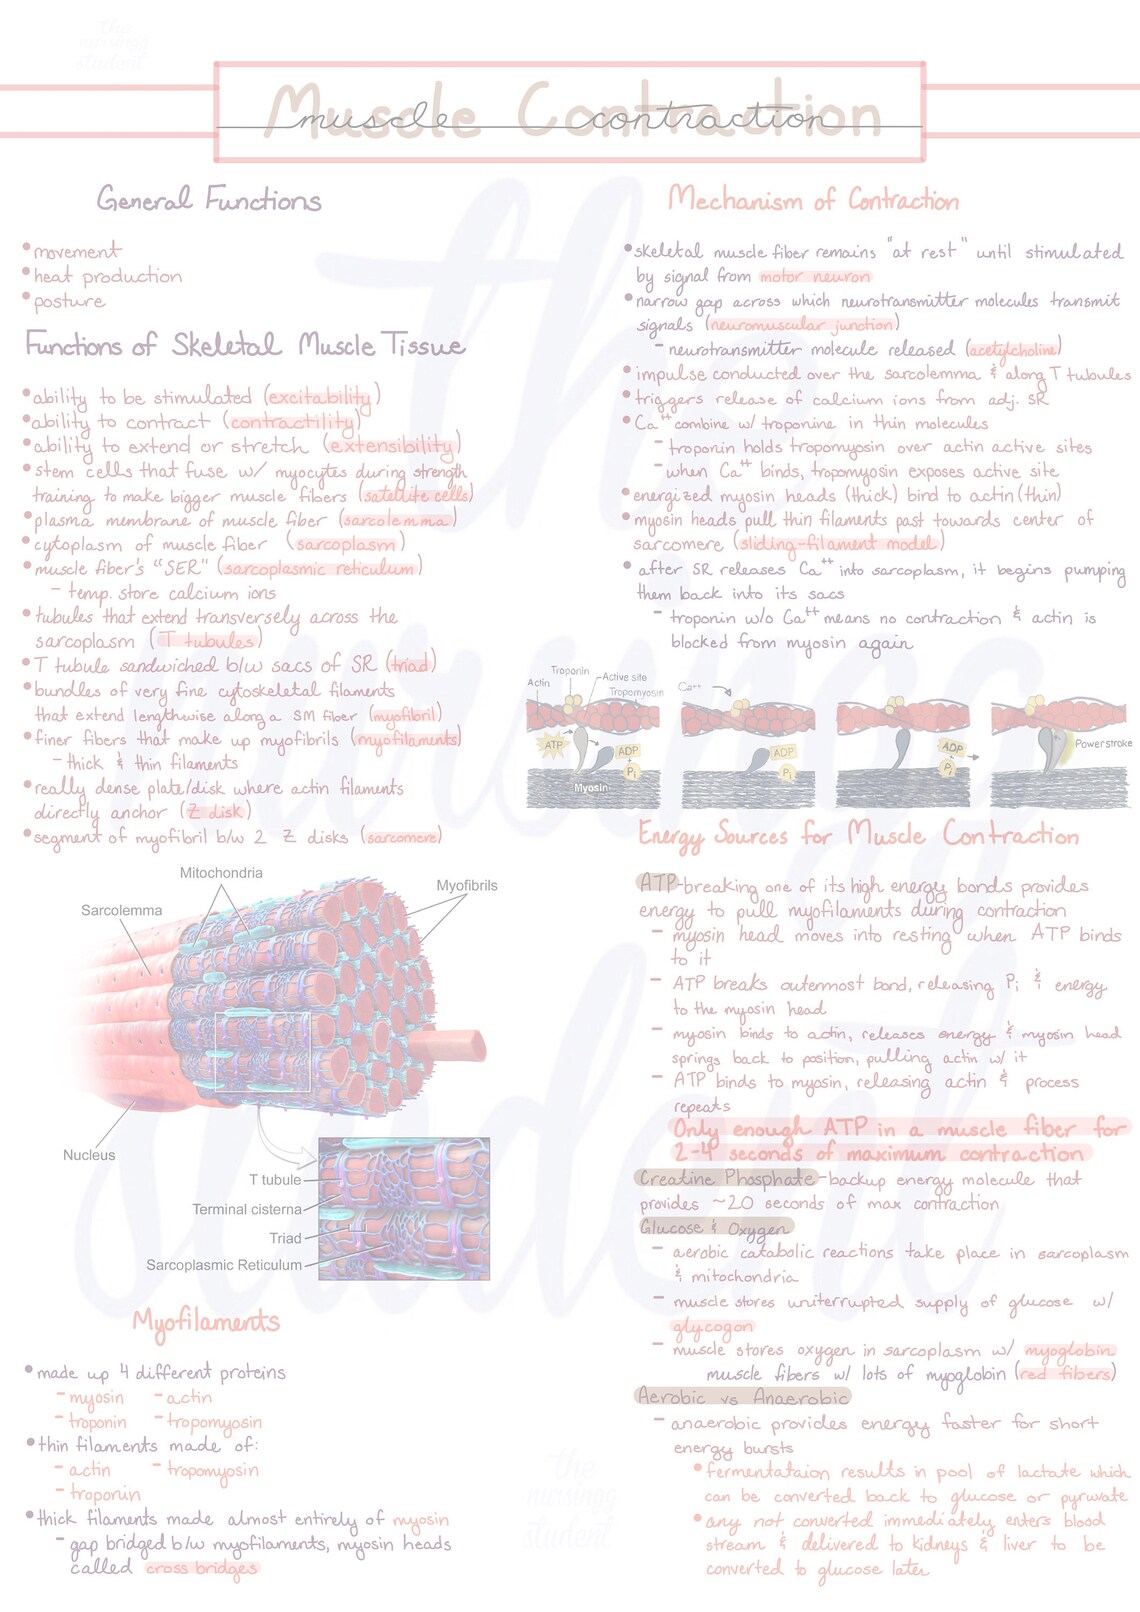 the
nursingg
student
Muscle Contraction
muscle contraction
General Functions
•movement
•heat production
•posture
Functions of Skeletal Muscle Tissue
•ability to be stimulated (excitability)
•ability to contract (contractility)
•ability to extend or stretch (extensibility)
•stem cells that fuse w/ myocytes during strength
training to make bigger muscle fibers (satellite cells)
•plasma membrane of muscle fiber (sarcolemma)
•cytoplasm of muscle fiber (sarcoplasm)
•muscle fiber's "SER" (sarcoplasmic reticulum)
- temp. store calcium ions
•tubules that extend transversely across the
sarcoplasm (T tubules)
•T tubule sandwiched b/w sacs of SR (triad)
•bundles of very fine cytoskeletal filaments
that extend lengthwise along a SM fiber (myofibril)
•finer fibers that make up myofibrils (myofilaments)
- thick & thin filaments
•really dense plate/disk where actin filaments
directly anchor (Z disk)
•segment of myofibril b/w 2 Z disks (sarcomere)
Mitochondria
Myofibrils
Sarcolemma
Nucleus
T tubule
Terminal cisterna
Triad
Sarcoplasmic Reticulum
Myofilaments
•made up 4 different proteins
- myosin - actin
- troponin - tropomyosin
•thin filaments made of:
- actin - tropomyosin
- troponin
•thick filaments made almost entirely of myosin
- gap bridged b/w myofilaments, myosin heads
called cross bridges
Mechanism of Contraction
•skeletal muscle fiber remains "at rest" until stimulated
by signal from motor neuron
•narrow gap across which neurotransmitter molecules transmit
signals (neuromuscular junction)
- neurotransmitter molecule released (acetylcholine)
•impulse conducted over the sarcolemma & along T tubules
•triggers release of calcium ions from adj. SR
•Ca⁺⁺ combine w/ troponine in thin molecules
- troponin holds tropomyosin over actin active sites
- when Ca⁺⁺ binds, tropomyosin exposes active site
•energized myosin heads (thick) bind to actin (thin)
•myosin heads pull thin filaments past towards center of
sarcomere (sliding-filament model)
•after SR releases Ca⁺⁺ into sarcoplasm, it begins pumping
them back into its sacs
- troponin w/o Ca⁺⁺ means no contraction & actin is
blocked from myosin again
Troponin
Actin
Active site
Tropomyosin
ATP
ADP
Pi
Myosin
Ca⁺⁺
ADP
Pi
ADP
Pi
Powerstroke
Energy Sources for Muscle Contraction
ATP-breaking one of its high energy bonds provides
energy to pull myofilaments during contraction
- myosin head moves into resting when ATP binds
to it
- ATP breaks outermost bond, releasing Pi & energy
to the myosin head
- myosin binds to actin, releases energy & myosin head
springs back to position, pulling actin w/ it
- ATP binds to myosin, releasing actin & process
repeats
Only enough ATP in a muscle fiber for
2-4 seconds of maximum contraction
Creatine Phosphate-backup energy molecule that
provides ~20 seconds of max contraction
Glucose & Oxygen
- aerobic catabolic reactions take place in sarcoplasm
& mitochondria
- muscle stores uniterrupted supply of glucose w/
glycogon
- muscle stores oxygen in sarcoplasm w/ myoglobin
muscle fibers w/ lots of myoglobin (red fibers)
Aerobic vs Anaerobic
- anaerobic provides energy faster for short
energy bursts
•fermentataion results in pool of lactate which
can be converted back to glucose or pyruvate
•any not converted immediately enters blood
stream & delivered to kidneys & liver to be
converted to glucose later
the
nursingg
student
the
nursingg
student